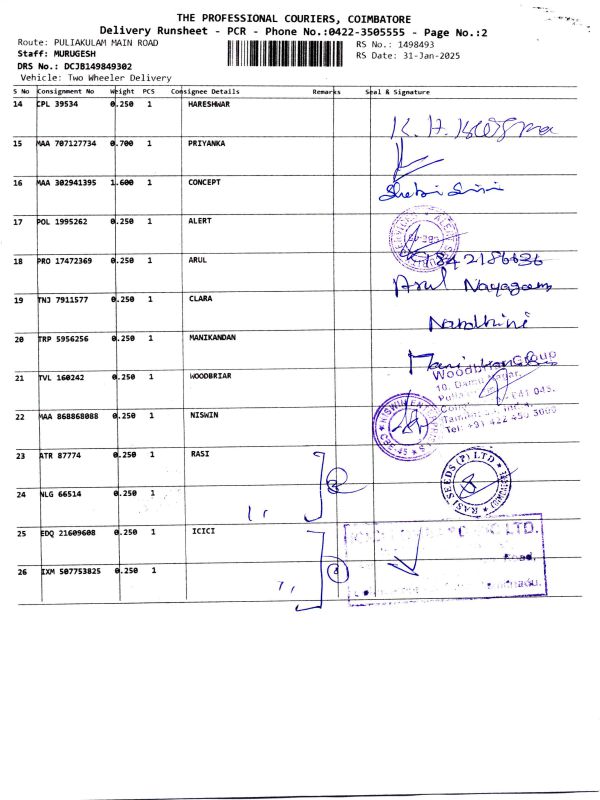 THE PROFESSIONAL COURIERS, COIMBATORE
Delivery Runsheet - PCR - Phone No.:0422-3505555 - Page No.:2
Route: PULIAKULAM MAIN ROAD
RS No.: 1498493
Staff: MURUGESH
RS Date: 31-Jan-2025
DRS No.: DCJB149849302
Vehicle: Two Wheeler Delivery
S No Consignment No Weight PCS Consignee Details Remarks Seal & Signature
14 CPL 39534 0.250 1 HARESHWAR
K. H.
15 MAA 707127734 0.700 1 PRIYANKA
16 MAA 302941395 1.600 1 CONCEPT
17 POL 1995262 0.250 1 ALERT
18 PRO 17472369 0.250 1 ARUL
9842186636
Arul Nayagam
19 TNJ 7911577 0.250 1 CLARA
Nandhini
20 TRP 5956256 0.250 1 MANIKANDAN
Manikandan
21 TVL 160242 0.250 1 WOODBRIAR
Woodbriar Group
22 MAA 868868088 0.250 1 NISWIN
NISWIN
CBE-45
23 ATR 87774 0.250 1 RASI
RASI SEEDS (P) LTD
2
24 NLG 66514 0.250 1
25 EDQ 21609608 0.250 1 ICICI
LTD.
Road,
26 IXM 507753825 0.250 1